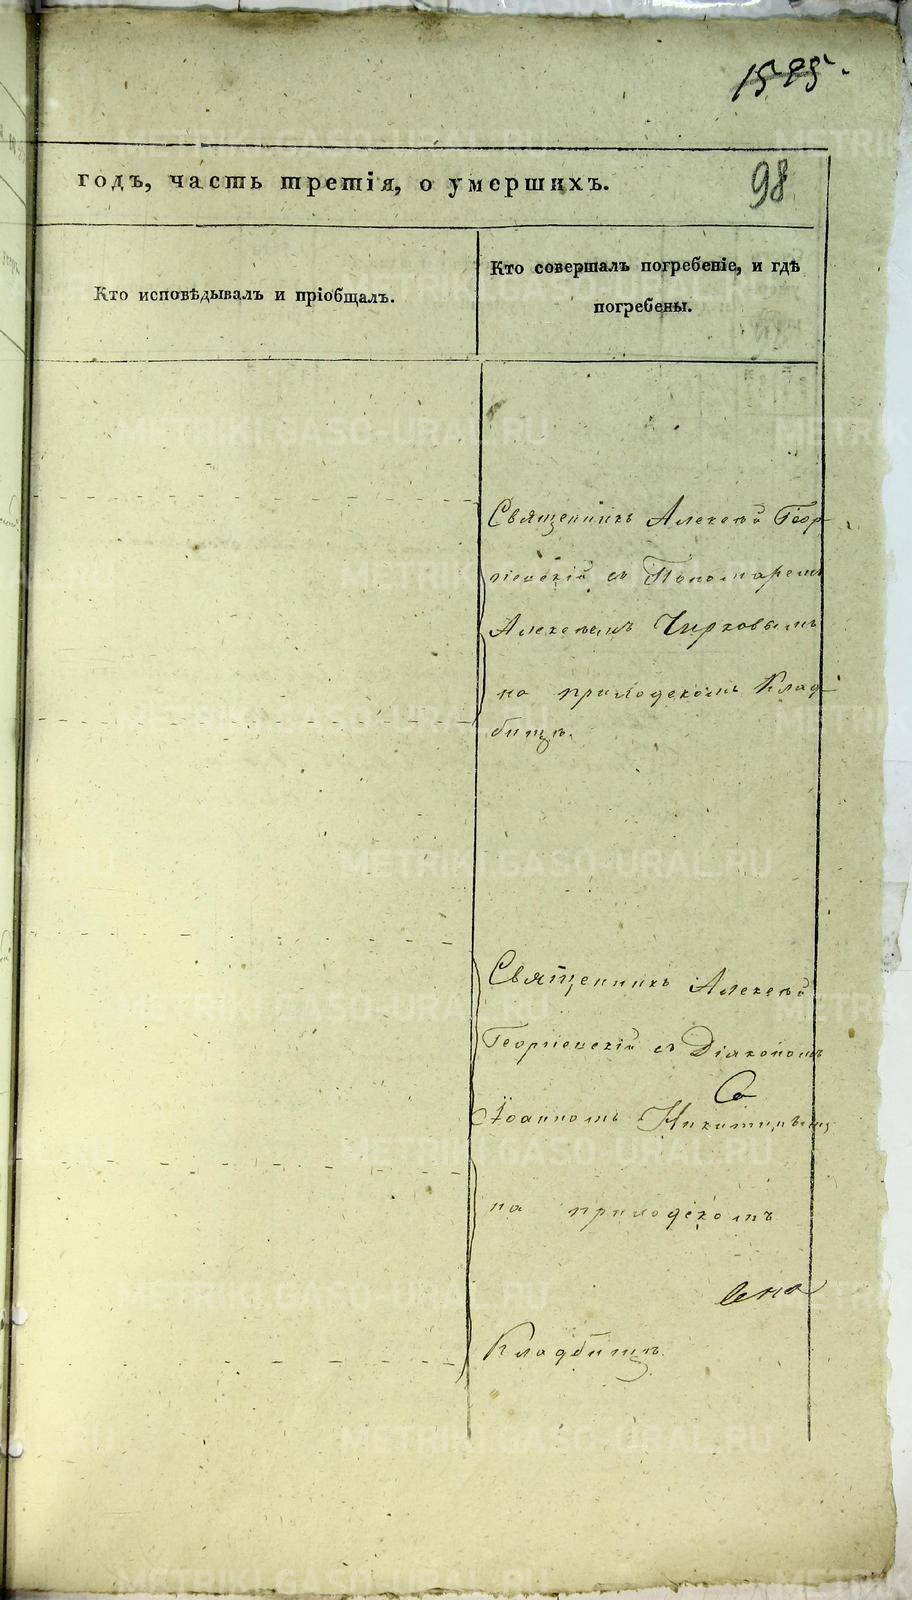 1595.
98
годъ, часть третія, о умершихъ.
Кто исповѣдывалъ и пріобщалъ.
Кто совершалъ погребеніе, и гдѣ
погребены.
Священникъ Алексѣй Геор-
гіевскій съ Пономаремъ
Алексѣемъ Чирковымъ
на приходскомъ Клад-
бищѣ.
Священникъ Алексѣй
Георгіевскій съ Діакономъ
Іоанномъ Никитинымъ
на приходскомъ
Кладбищѣ.
METRIKI.GASO-URAL.RU